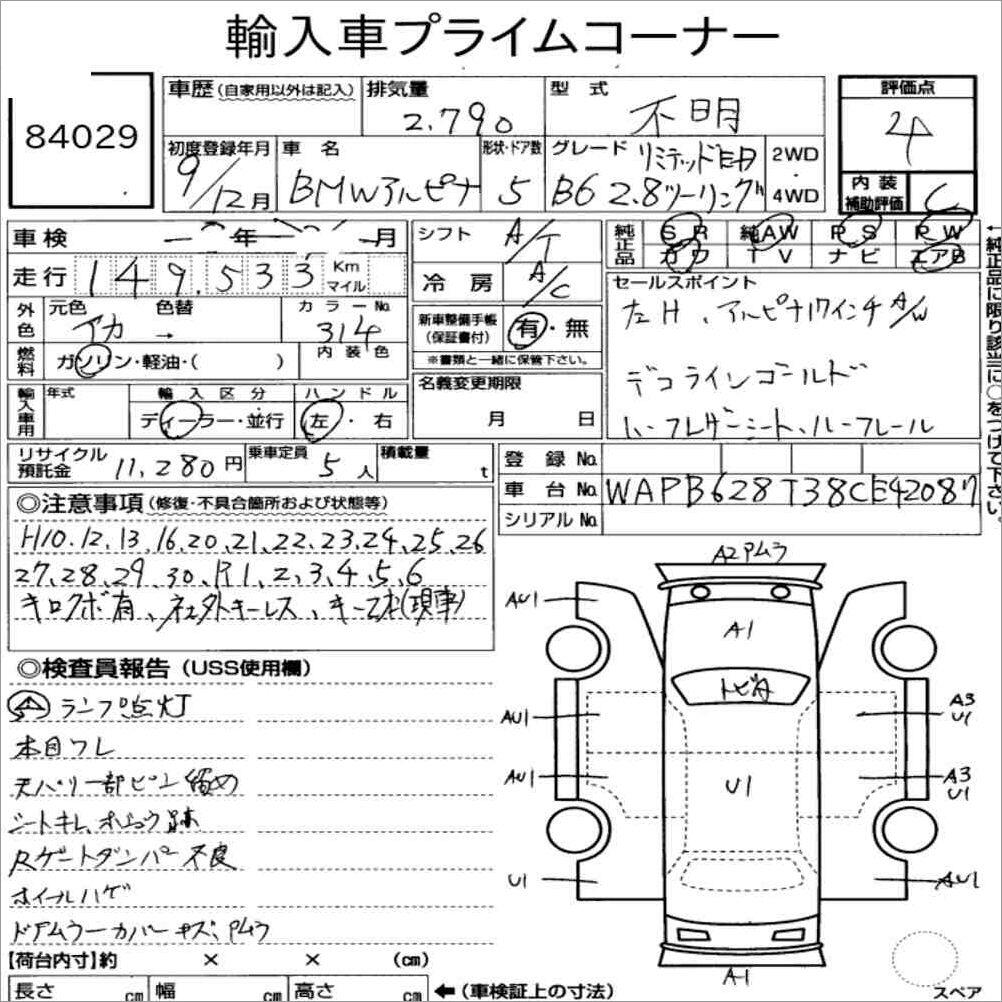 輸入車プライムコーナー
84029
車歴(自家用以外は記入)
排気量 2.790
型式 不明
評価点 4
初度登録年月 9/12月
車名 BMWアルピナ
形状・ドア数 5
グレード リミテッドモデル B6 2.8ツーリング
2WD
4WD
内装補助評価 C
車検 ー年ー月
走行 149.533 Km マイル
シフト A/T
冷房 A/C
純正品 SR 純AW PS PW
カワ TV ナビ エアB
外色 元色 アカ 色替 → カラーNo. 314
内装色
燃料 ガソリン・軽油・( )
新車整備手帳(保証書付) 有・無
※書類と一緒に保管下さい。
セールスポイント
左H、アルピナ17インチA/W
デコラインゴールド
ハーフレザーシート、ルーフレール
輸入車用 年式
輸入区分 ディーラー・並行
ハンドル 左・右
名義変更期限 月 日
←純正品に限り該当に〇をつけて下さい。
リサイクル預託金 11,280円
乗車定員 5人
積載量 t
登録No.
車台No. WAPB628T38CE42087
シリアルNo.
◎注意事項(修復・不具合箇所および状態等)
H10.12,13,16,20,21,22,23,24,25,26
27,28,29,30,R1,2,3,4,5,6
キロクボ有、社外キーレス、キー2本(現車)
◎検査員報告(USS使用欄)
ランプ点灯
本目フレ
天バリ一部ピン留め
シートキレ、ホシュウ跡
Rゲートダンパー不良
ホイールハゲ
ドアムラーカバーキズ、Pムラ
A2 Pムラ
AU1
A1
トビ有
AU1
A3
U1
AU1
U1
A3
U1
U1
AU1
A1
スペア
【荷台内寸】約 × × (cm)
長さ cm 幅 cm 高さ cm ←(車検証上の寸法)